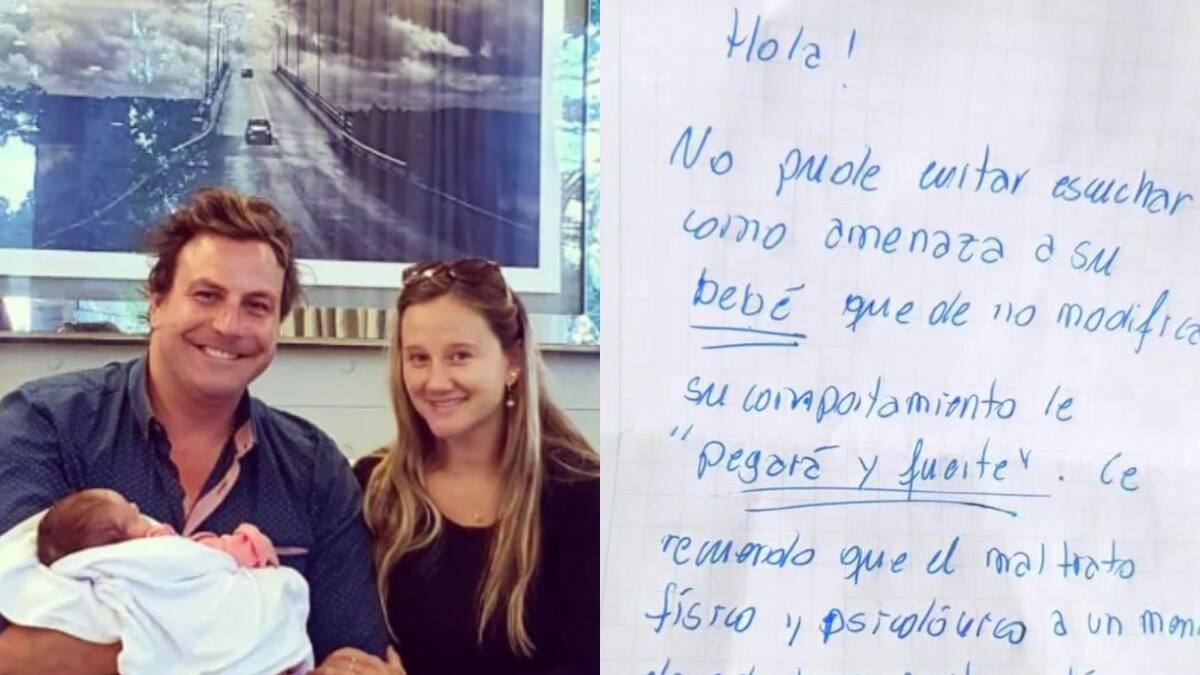 Hola!
No pude evitar escuchar
como amenaza a su
bebé que de no modifica
su comportamiento le
"pegará y fuerte". Le
recuerdo que el maltrato
físico y psicológico a un men